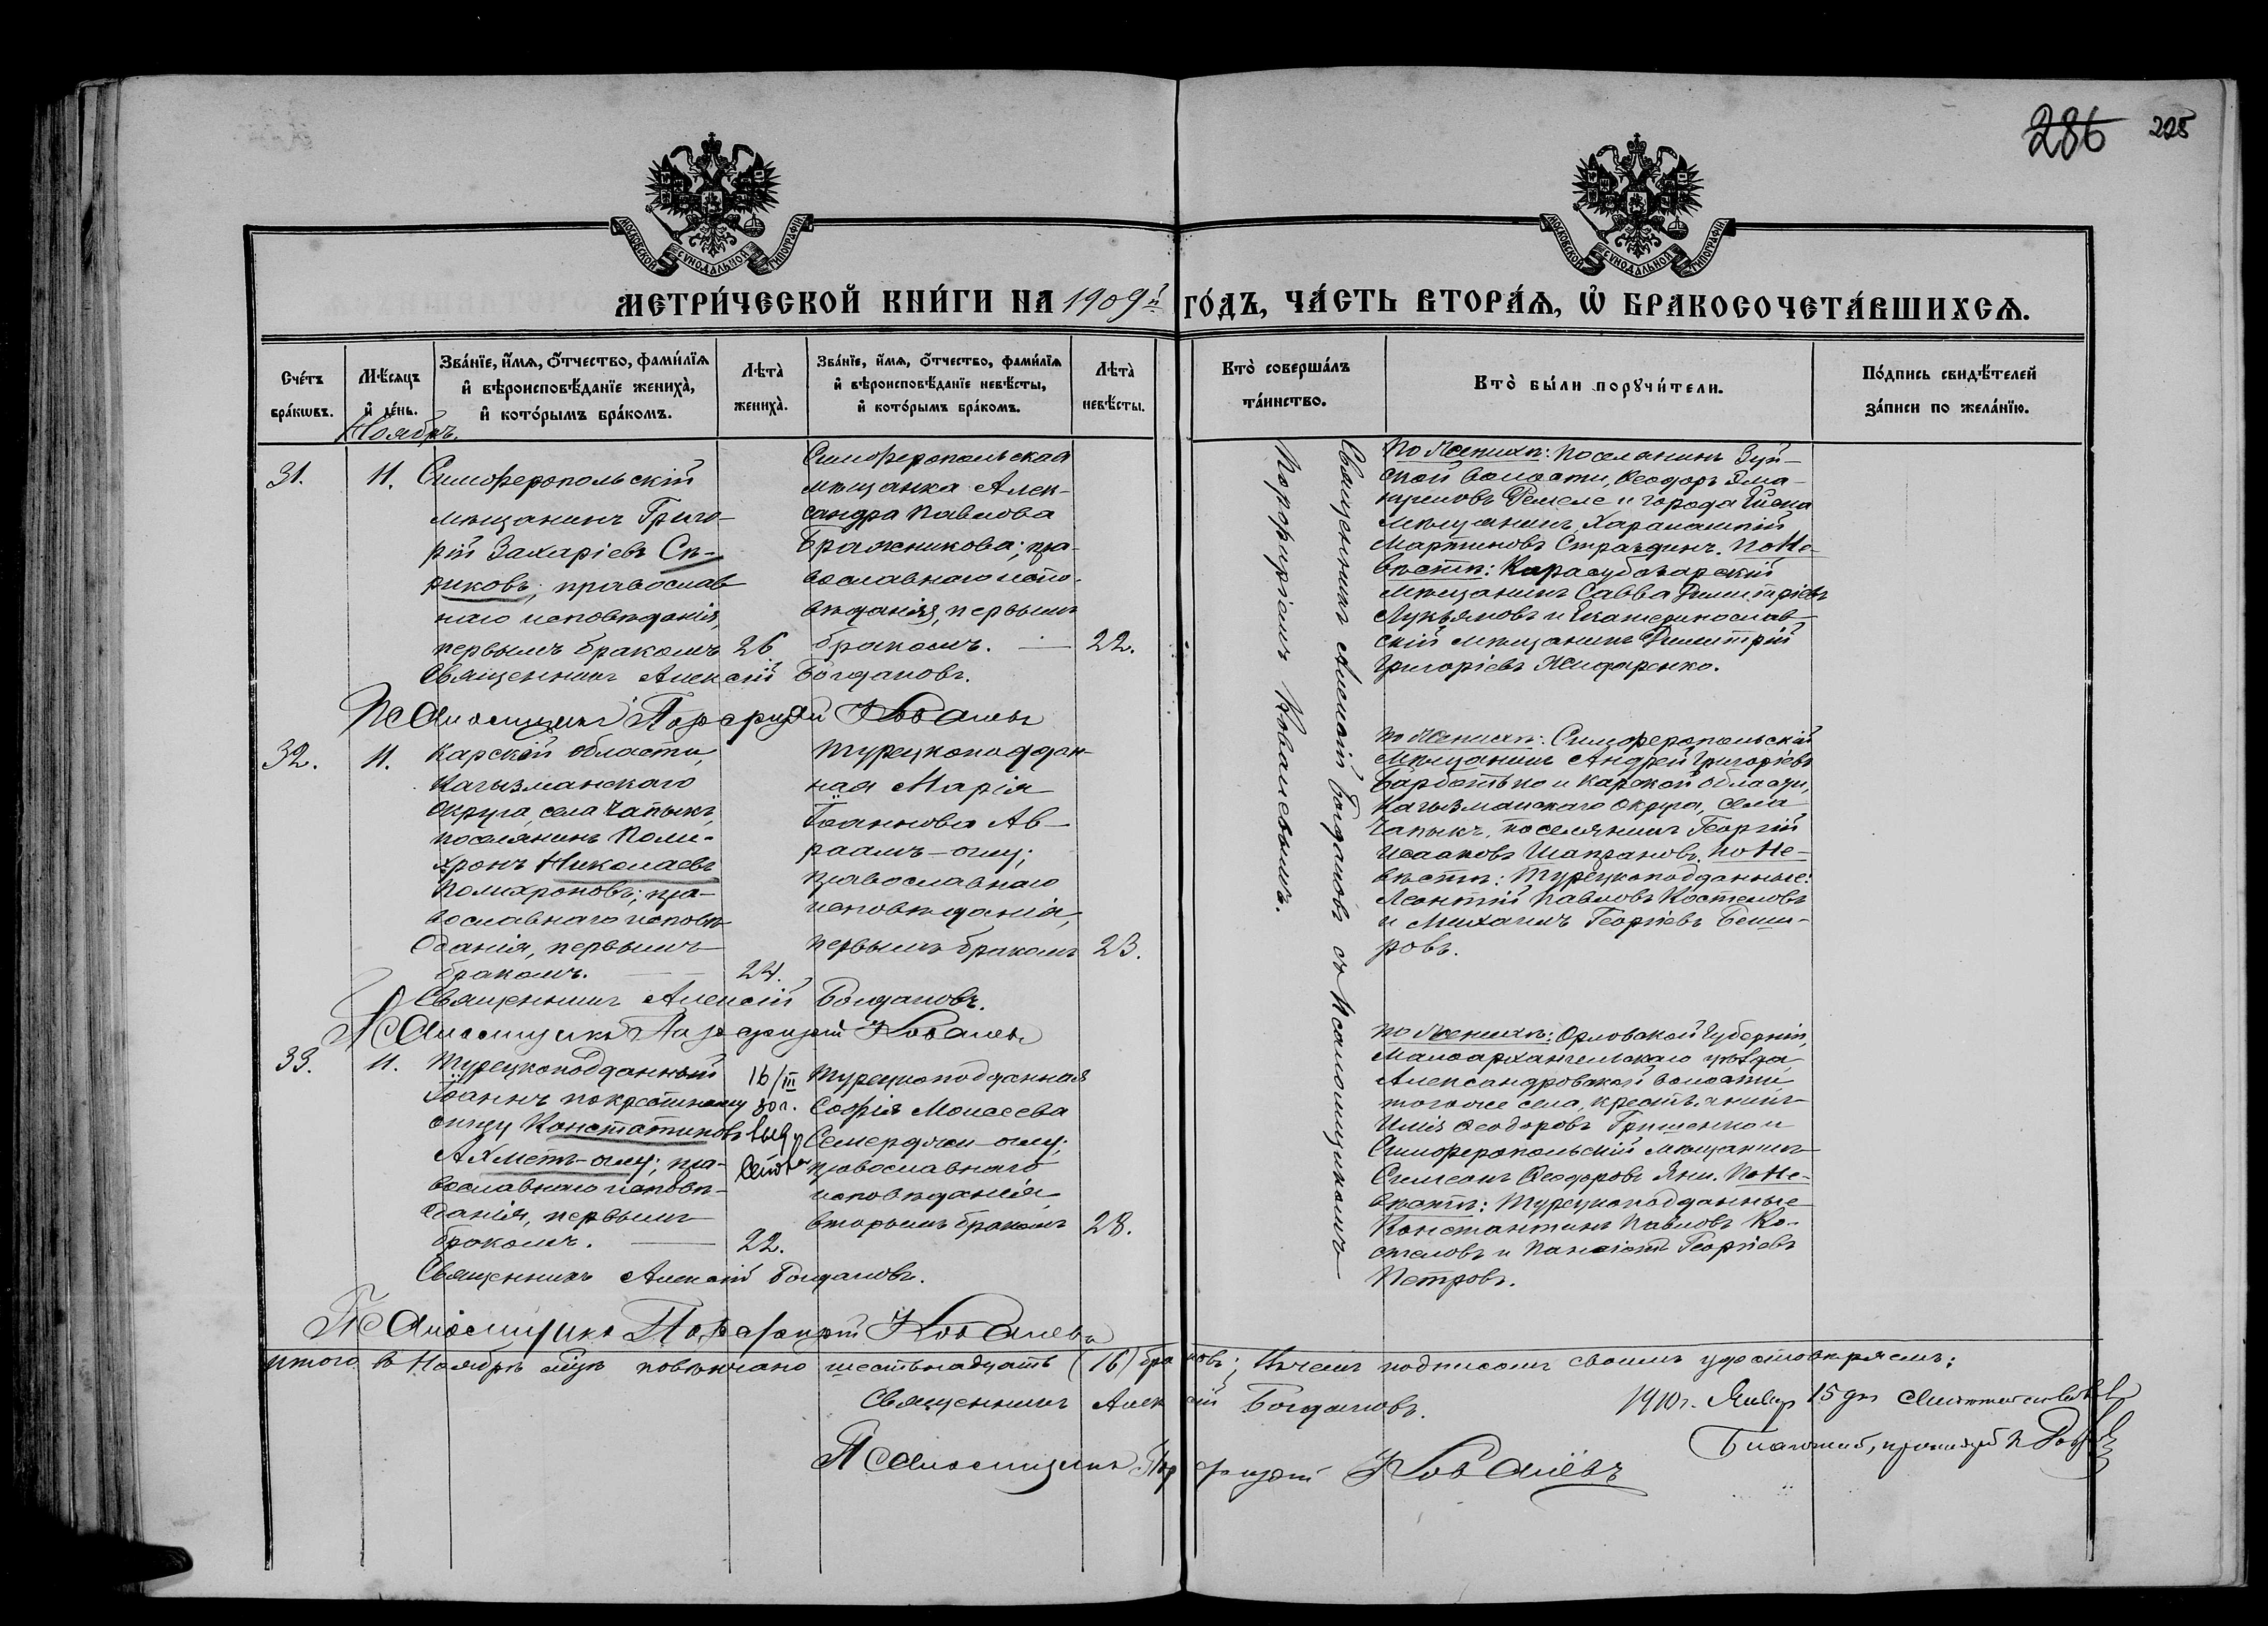 286 228
МОСКОВСКОЙ СѴНОДАЛЬНОЙ ТИПОГРАФІИ
МОСКОВСКОЙ СѴНОДАЛЬНОЙ ТИПОГРАФІИ
МЕТРИ́ЧЕСКОЙ КНИ́ГИ НА 1909й ГО́ДЪ, ЧА́СТЬ ВТОРА́Ѧ, Ѡ БРАКОСОЧЕТА́ВШИХСѦ.
Сче́тъ бра́кωвъ.
Мѣ́сяцъ и де́нь.
Зва́нїе, и́мѧ, ѻ́тчество, фами́лїѧ
и вѣроисповѣ́данїе жениха̀,
и кото́рымъ бра́комъ.
Лѣта̀ жениха̀.
Зва́нїе, и́мѧ, ѻ́тчество, фами́лїѧ
и вѣроисповѣ́данїе невѣ́сты,
и кото́рымъ бра́комъ.
Лѣта̀ невѣ́сты.
Кто̀ соверша́лъ та́инство.
Кто̀ бы́ли порꙋчи́тели.
По́дпись свидѣ́телей за́писи по жела́нїю.
Ноябрь.
31.
11.
Симферопольскій
мѣщанинъ Григо-
рій Захаріевъ Сп-
риковъ; православ
наго исповѣданія,
первымъ бракомъ
26
Симферопольская
мѣщанка Алек-
сандра Павлова
Бражникова; пра-
вославнаго испо-
вѣданія, первымъ
бракомъ. —
22.
Священникъ Алексій Богдановъ.
Псаломщикъ Порфирій Ковалевъ
По Женихѣ: поселянинъ Зуй-
ской волости, Ѳеодоръ Эма-
нуиловъ Фемеле и города Ейска
мѣщанинъ, Харалампій
Мартиновъ Страздинъ. По Не-
вѣстѣ: Карасубазарскій
мѣщанинъ Савва Димитріевъ
Лукьяновъ и Екатеринослав-
скій мѣщанинъ Димитрій
Григоріевъ Жидаренко.
Священникъ Алексій Богдановъ съ Псаломщикомъ
Порфиріемъ Ковалевымъ.
32.
11.
Карской области,
Кагызманскаго
округа, села Чапыкъ,
поселянинъ Поли-
хронъ Николаевъ
Полихроновъ; пра-
вославнаго исповѣ-
данія, первымъ
бракомъ. —
24.
Турецкоподдан-
ная Марія
Іоаннова Ав-
раамъ-оглу;
православнаго
исповѣданія,
первымъ бракомъ
23.
Священникъ Алексій Богдановъ.
Псаломщикъ Порфирій Ковалевъ
По Женихѣ: Симферопольскій
мѣщанинъ Андрей Григоріевъ
Барботько и Карской области,
Кагызманскаго округа, села
Чапыкъ, поселянинъ Георгій
Исааковъ Шапрановъ. По Не-
вѣстѣ: Турецкоподданные:
Леонтій Павловъ Костеновъ
и Михаилъ Георгіевъ Беши-
ровъ.
33.
11.
Турецкоподданный
Іоаннъ по крестному
отцу Константиновъ
Ахметъ-оглу; пра-
вославнаго исповѣ-
данія, первымъ
бракомъ. —
22.
16/III
30 г.
Турецкоподданная
Софія Моисеева
Семерджи-оглу;
православнаго
исповѣданія,
вторымъ бракомъ
28.
Священникъ Алексій Богдановъ.
Псаломщикъ Порфирій Ковалевъ
По Женихѣ: Орловской Губерніи,
Малоархангельскаго уѣзда,
Александровской волости,
того же села, крестьянинъ
Илія Ѳеодоровъ Гришенко и
Симферопольскій мѣщанинъ
Симеонъ Ѳеодоровъ Яни. По Не-
вѣстѣ: Турецкоподданные
Константинъ Павловъ Ко-
стеловъ и Панаіотъ Георгіевъ
Петровъ.
Итого въ Ноябрѣ м-цѣ повѣнчано шестьнадцать (16) браковъ; въ чемъ подписомъ своимъ удостовѣряемъ:
Священникъ Алексій Богдановъ.
Псаломщикъ Порфирій Ковалёвъ
1910 г. Январ 15 дня
Благочин.,